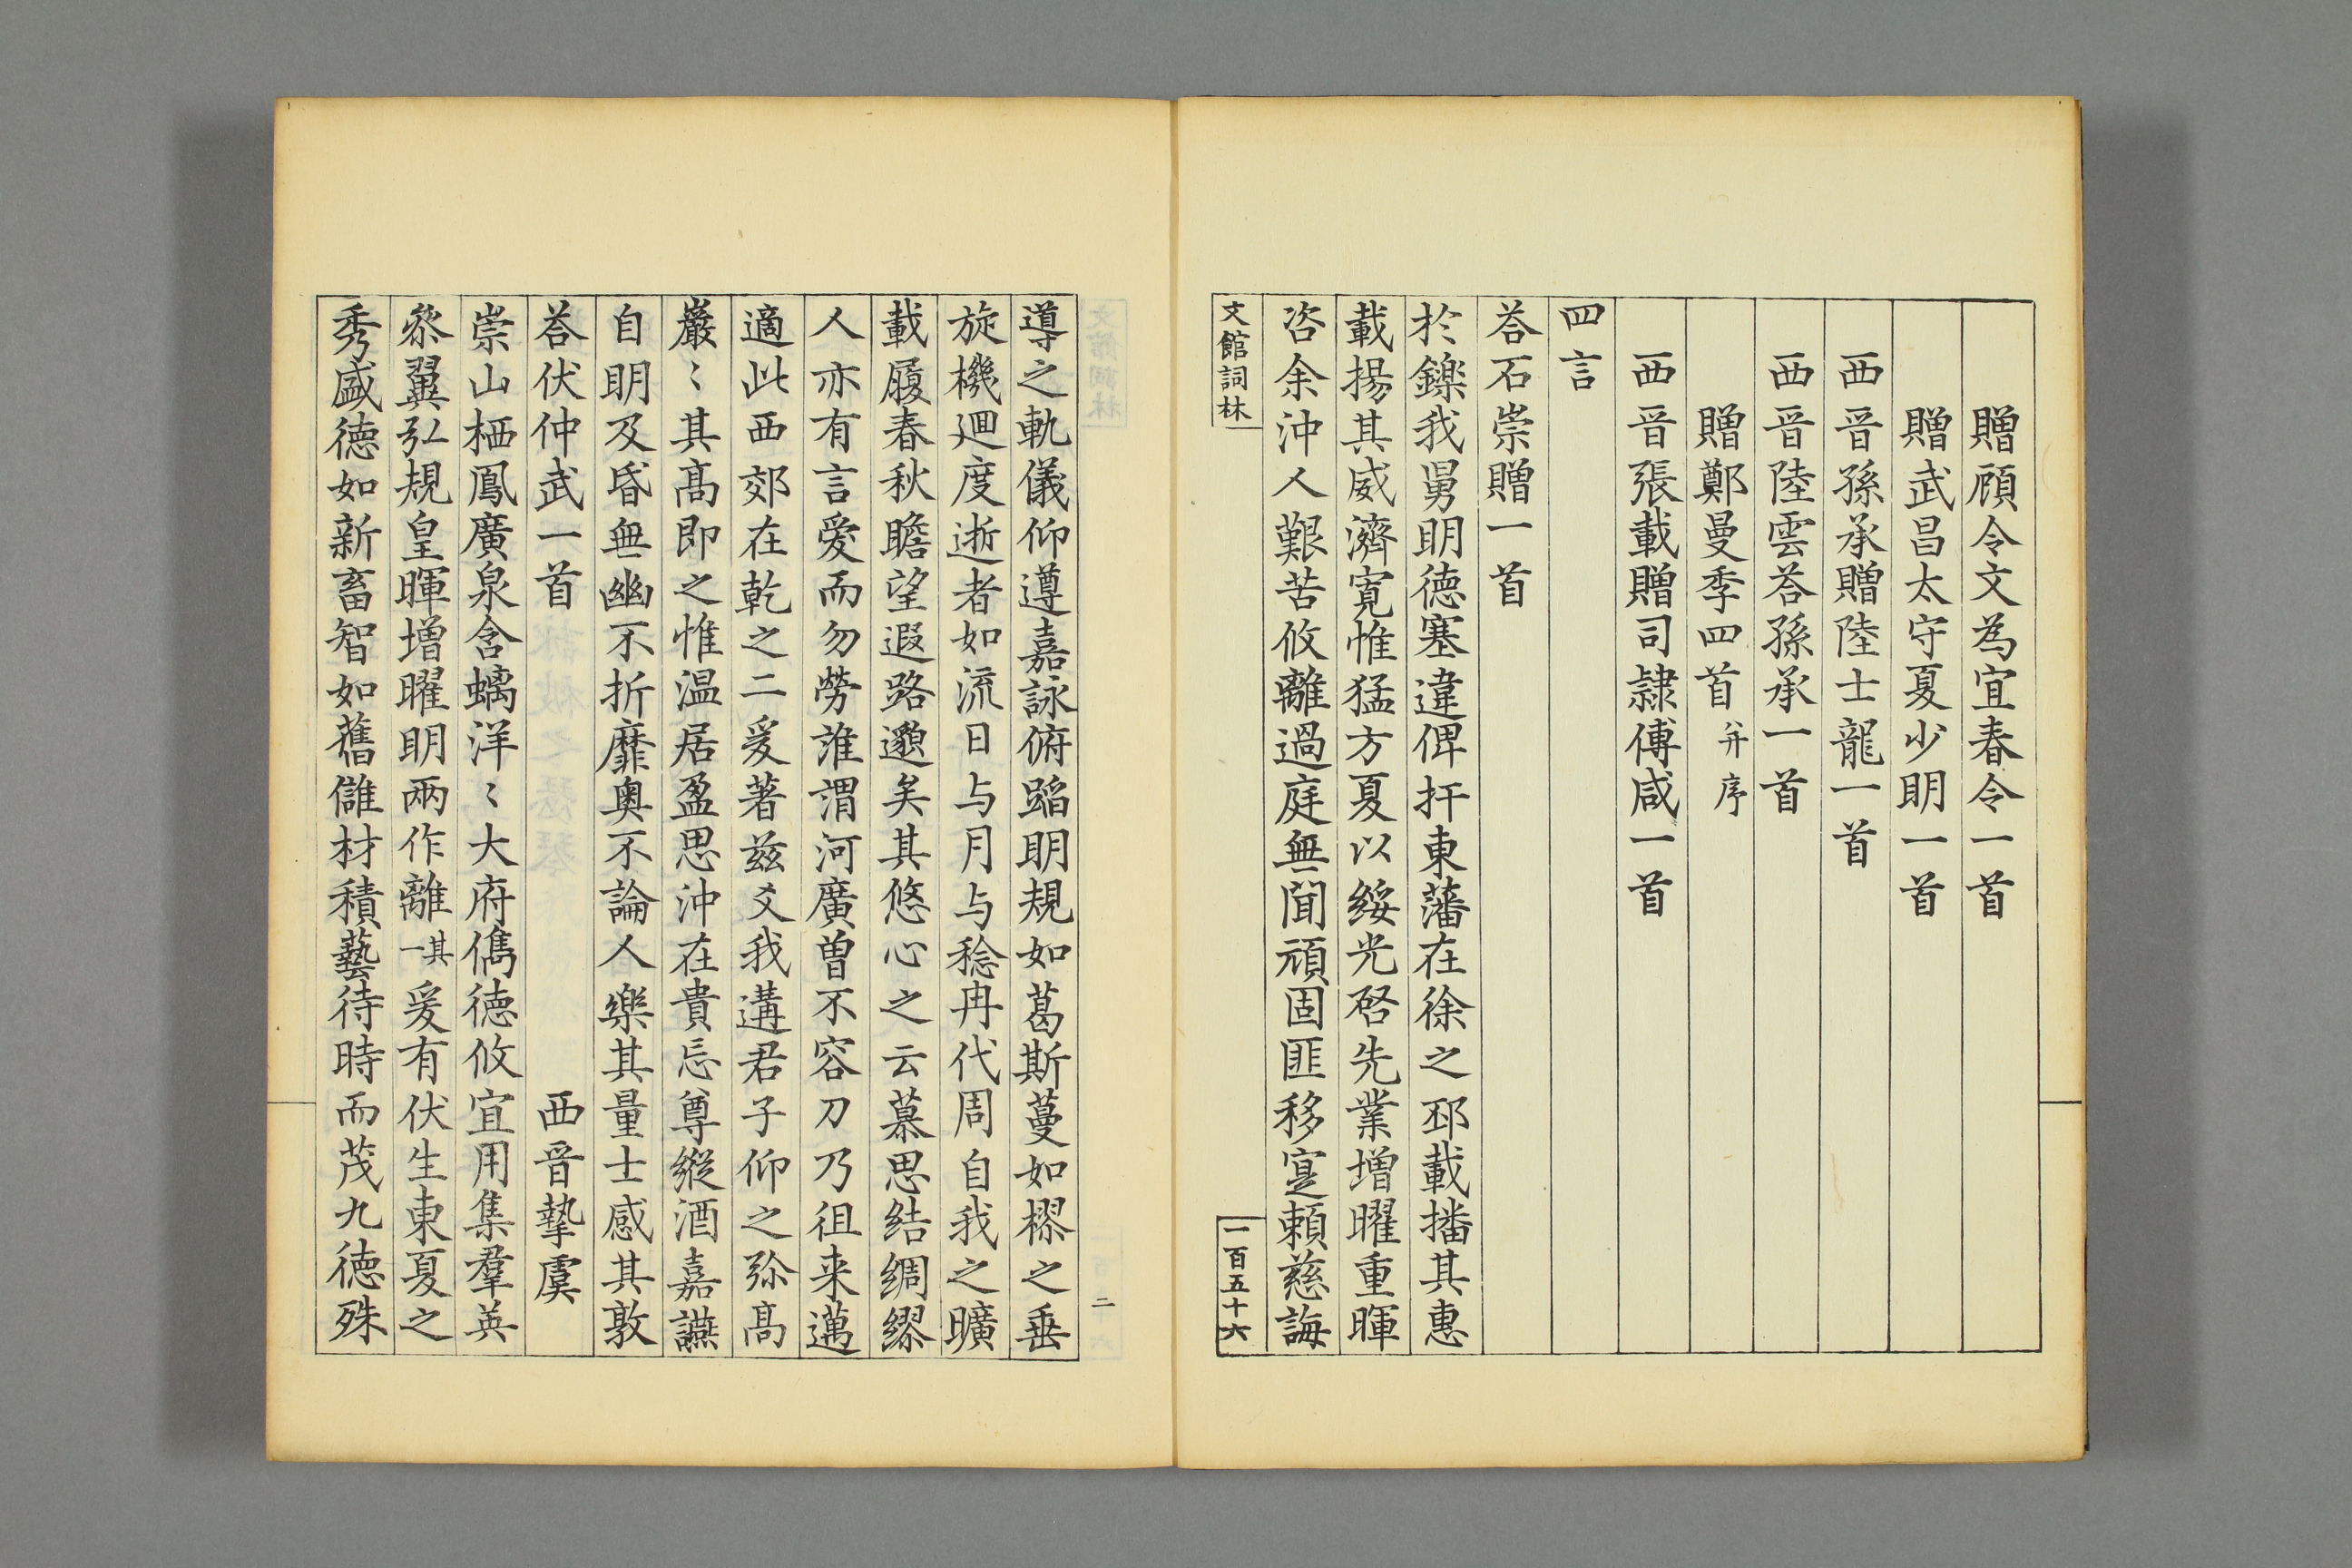 贈顧令文為宜春令一首
贈武昌太守夏少明一首
西晉孫承贈陸士龍一首
西晉陸雲荅孫承一首
贈鄭曼季四首并序
西晉張載贈司隸傅咸一首
四言
荅石崇贈一首
於鑠我舅明德塞違俾扞東藩在徐之邳載播其惠
載揚其威濟寬惟猛方夏以綏光啓先業增曜重暉
咨余沖人艱苦攸離過庭無聞頑固匪移寔賴慈誨
文館詞林
一百五十六
二
導之軌儀仰遵嘉詠俯蹈明規如葛斯蔓如樛之垂
旋機迴度逝者如流日与月与稔冉代周自我之曠
載履春秋瞻望遐路邈矣其悠心之云慕思結綢繆
人亦有言愛而勿勞誰謂河廣曾不容刀乃徂来邁
適此西郊在乾之二爰著茲爻我遘君子仰之弥髙
嚴〻其髙即之惟温居盈思沖在貴忘尊縱酒嘉讌
自明及昏無幽不折靡奧不論人樂其量士感其敦
荅伏仲武一首 西晉摯虞
崇山栖鳳廣泉含螭洋〻大府儁德攸宜用集羣英
叅翼弘規皇暉增曜明兩作離其一爰有伏生東夏之
秀盛德如新畜智如舊讎材積藝待時而茂九德殊